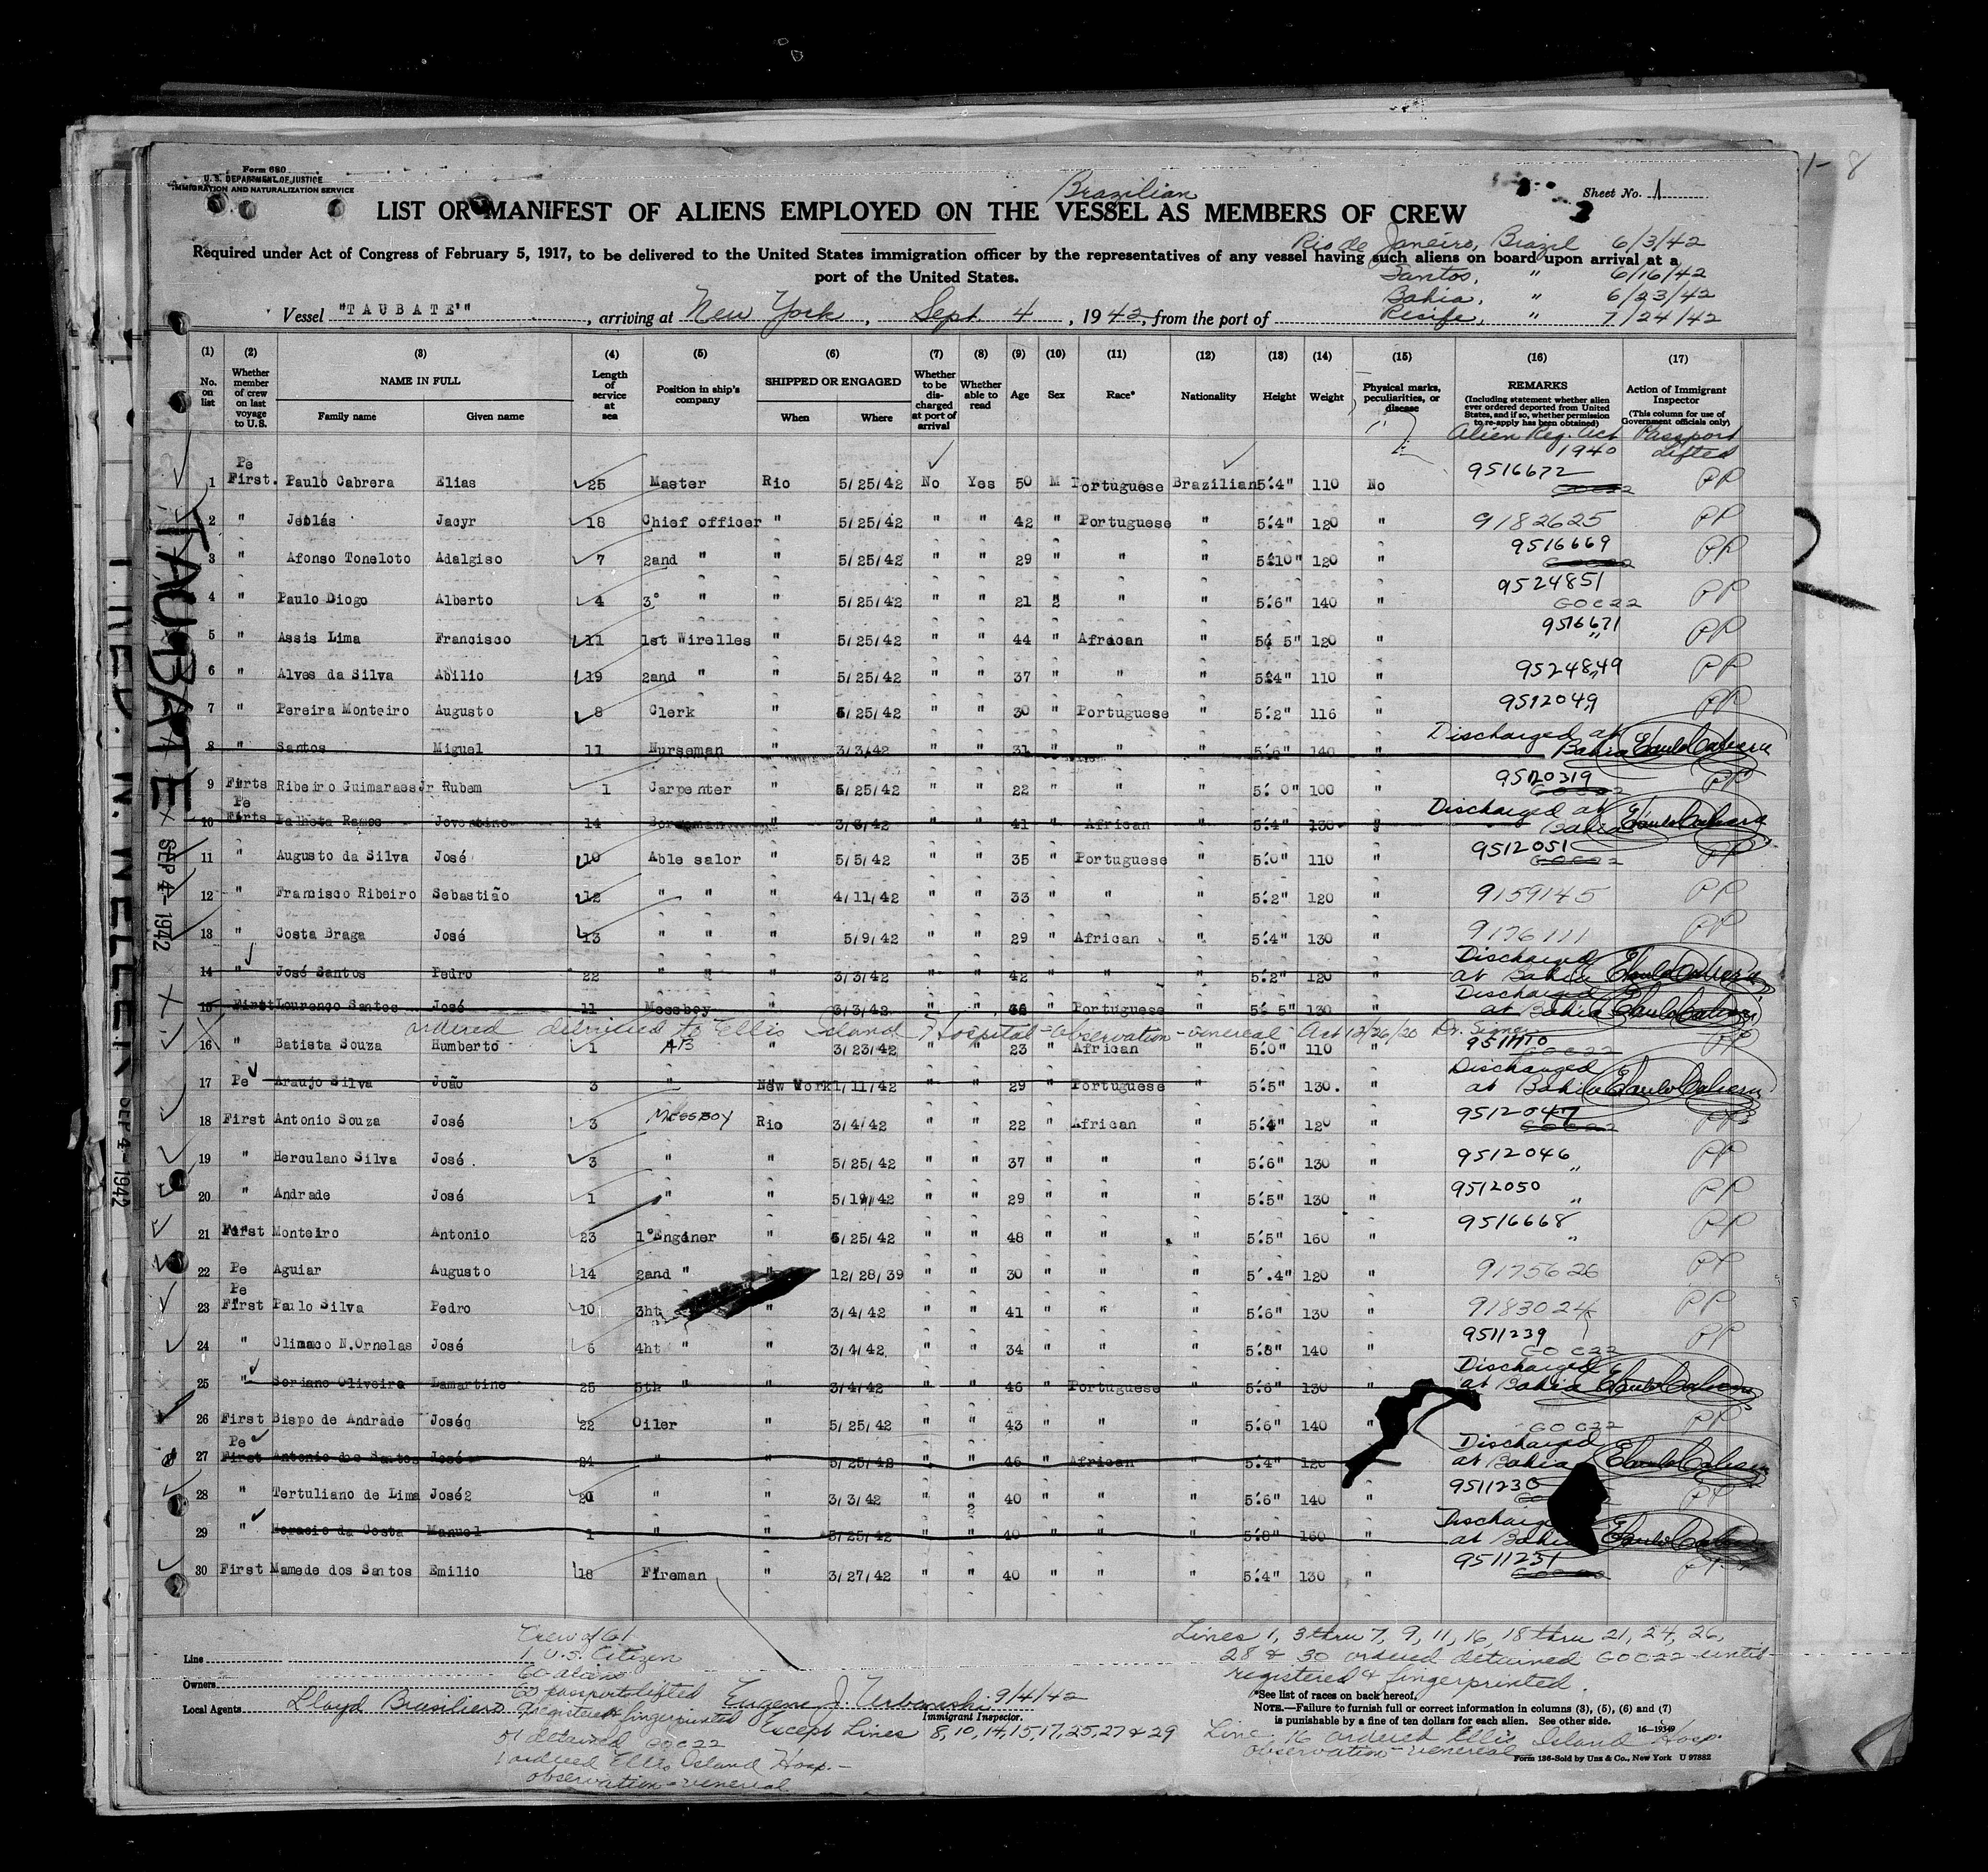 1- 8
Form 680
U. S. DEPARTMENT OF JUSTICE
IMMIGRATION AND NATURALIZATION SERVICE
Sheet No. 1
Brazilian
LIST OR MANIFEST OF ALIENS EMPLOYED ON THE VESSEL AS MEMBERS OF CREW
Rio de Janeiro, Brazil 6/3/42
Required under Act of Congress of February 5, 1917, to be delivered to the United States immigration officer by the representatives of any vessel having such aliens on board upon arrival at a
port of the United States.
Santos, " 6/16/42
Bahia, " 6/23/42
Vessel "TAUBATE'", arriving at New York, Sept 4, 1942, from the port of Recife, " 7/24/42
(1) (2) (3) (4) (5) (6) (7) (8) (9) (10) (11) (12) (13) (14) (15) (16) (17)
No. on list
Whether member of crew on last voyage to U.S.
NAME IN FULL
Family name
Given name
Length of service at sea
Position in ship's company
SHIPPED OR ENGAGED
When
Where
Whether to be discharged at port of arrival
Whether able to read
Age
Sex
Race*
Nationality
Height
Weight
Physical marks, peculiarities, or disease
REMARKS
(Including statement whether alien ever ordered deported from United States, and if so, whether permission to re-apply has been obtained)
Action of Immigrant Inspector
(This column for use of Government officials only)
Alien Reg. Act 1940
Passport Lifted
Pe
1 First. Paulo Cabrera Elias 25 Master Rio 5/25/42 No Yes 50 M Portuguese Brazilian 5.4" 110 No 9516672 GOC22 PP
2 " Jeolás Jacyr 18 Chief officer " 5/25/42 " " 42 " Portuguese " 5.4" 120 " 9182625 PP
3 " Afonso Toneloto Adalgiso 7 2and " " 5/25/42 " " 29 " " " 5.10" 120 " 9516669 GOC22 PP
4 " Paulo Diogo Alberto 4 3° " " 5/25/42 " " 21 " " " 5.6" 140 " 9524851 GOC22 PP
5 " Assis Lima Francisco 11 1st Wirelles " 5/25/42 " " 44 " African " 5. 5" 120 " 9516671 " PP
6 " Alves da Silva Abilio 19 2and " " 5/25/42 " " 37 " " " 5.4" 110 " 9524849 " PP
7 " Pereira Monteiro Augusto 8 Clerk " 5/25/42 " " 30 " Portuguese " 5.2" 116 " 9512049 " PP
8 " Santos Miguel 11 Nurseman " 3/3/42 " " 31 " " " 5.6" 140 " Discharged at Bahia
9 Firts Ribeiro Guimaraes Jr Rubem 1 Carpenter " 5/25/42 " " 22 " " " 5. 0" 100 " 9520319 GOC22 PP
Pe
10 Firts Palheta Ramos Joventino 14 " 3/3/42 " " 41 " African " 5.4" 130 " Discharged at Bahia
11 " Augusto da Silva José 10 Able salor " 5/5/42 " " 35 " Portuguese " 5.0" 110 " 9512051 GOC22 PP
12 " Francisco Ribeiro Sebastião 12 " " " 4/11/42 " " 33 " " " 5.2" 120 " 9159145 PP
13 " Costa Braga José 13 " " " 5/9/42 " " 29 " African " 5.4" 130 " 9176111 PP
14 " José Santos Pedro 22 " " " 3/3/42 " " 42 " " " 5.2" 120 " Discharged at Bahia
15 First Lourenço Santos José 11 Messboy " 3/3/42 " " 38 " Portuguese " 5. 5" 130 " Discharged at Bahia
ordered detained to Ellis Island Hospital - observation - venereal Act 12/26/20
16 " Batista Souza Humberto 1 AB " 3/23/42 " " 23 " African " 5.0" 110 " GOC22 PP
17 Pe Araujo Silva João 3 " New Work 1/11/42 " " 29 " Portuguese " 5.5" 130. " Discharged at Bahia
18 First Antonio Souza José 3 MESSBOY Rio 3/4/42 " " 22 " African " 5.4" 120 " 9512047 GOC22 PP
19 " Herculano Silva José 3 " 5/25/42 " " 37 " " " 5.6" 130 " 9512046 " PP
20 " Andrade José 1 " 5/19/42 " " 29 " " " 5.5" 130 " 9512050 " PP
21 First Monteiro Antonio 23 1° Enginer " 5/25/42 " " 48 " " " 5.5" 160 " 9516668 " PP
22 Pe Aguiar Augusto 14 2and " " 12/28/39 " " 30 " " " 5'.4" 120 " 9175626 PP
Pe
23 First Paulo Silva Pedro 10 3ht " 3/4/42 " " 41 " " " 5.6" 130 " 9183024 PP
24 " Climaco N.Ornelas José 6 4ht " " 3/4/42 " " 34 " " " 5.8" 140 " 9511239 GOC22 PP
25 " Soriano Oliveira Lamartine 25 5th " " 3/4/42 " " 46 " Portuguese " 5.6" 130 " Discharged at Bahia
26 First Bispo de Andrade José 22 Oiler " 5/25/42 " " 43 " " " 5.6" 140 " GOC22 PP
Pe
27 First Antonio dos Santos José 24 " " 3/25/42 " " 46 " African " 5.4" 120 Discharged at Bahia
28 " Tertuliano de Lima José 20 " " 3/3/42 " " 40 " " " 5.6" 140 " 9511230 PP
29 " Horacio da Costa Manuel 1 " " 5/25/42 " " 40 " " " 5.8" 160 " Discharged at Bahia
30 First Mamede dos Santos Emilio 18 Fireman " 3/27/42 " " 40 " " " 5.4" 130 " 9511231 PP
TAUBATE
SEP 4 - 1942
SEP 4 - 1942
Crew of 61
1 U.S. Citizen
60 aliens
60 passports lifted
9 registered & fingerprinted
51 detained GOC22
1 ordered Ellis Island Hosp. -
observation - venereal
Line
Owners
Local Agents Lloyd Brasileiro
Eugene J. Urbanski 9/4/42
Immigrant Inspector.
Except Lines 8, 10, 14, 15, 17, 25, 27 & 29
Lines 1, 3 thru 7, 9, 11, 16, 18 thru 21, 24, 26,
28 & 30 ordered detained GOC22 until
registered & fingerprinted.
*See list of races on back hereof.
NOTE.—Failure to furnish full or correct information in columns (3), (5), (6) and (7)
is punishable by a fine of ten dollars for each alien. See other side.
16—19349
Line 16 ordered Ellis Island Hosp.
observation - venereal
Form 136-Sold by Unz & Co., New York U 97882